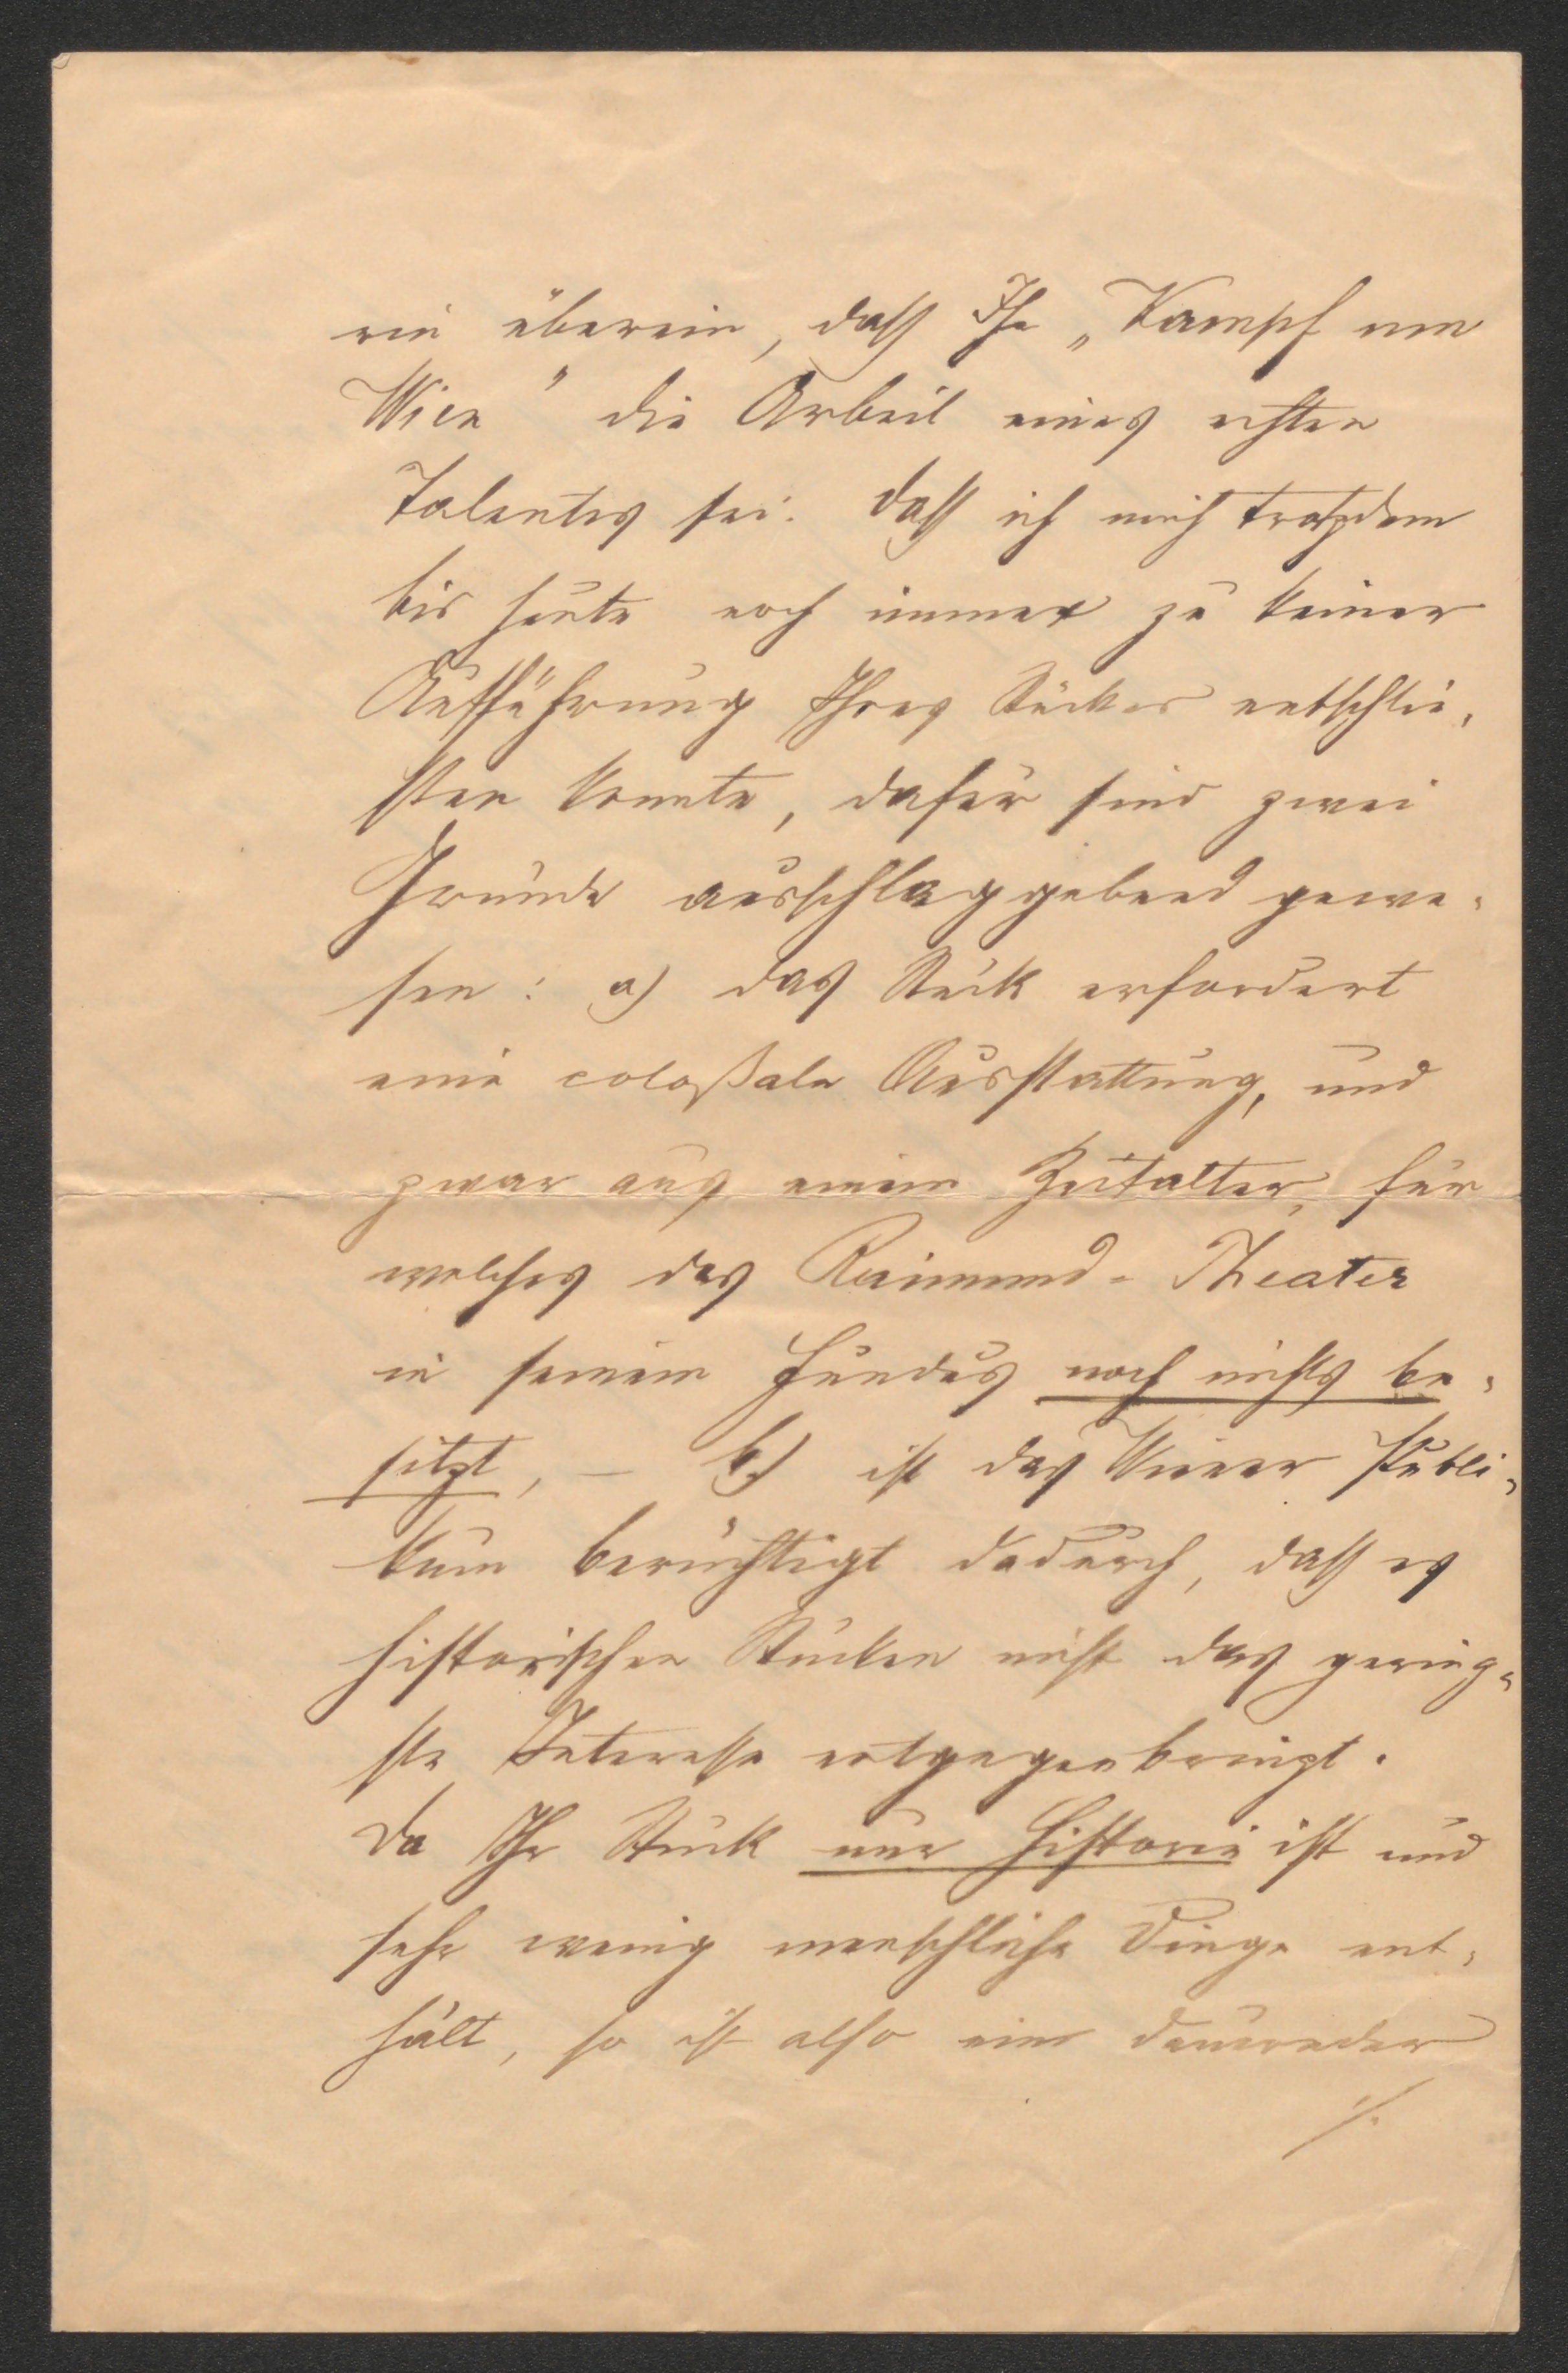 rin überein, dass Ihr „Kampf um
Wien" die Arbeit eines echten
Talentes sei. Dass ich mich trotzdem
bis heute noch immer zu keiner
Aufführung Ihres Stückes entschlie-
ssen konnte, dafür sind zwei
Gründe ausschlaggebend gewe-
sen: a) das Stück erfordert
eine coloßale Ausstattung, und
zwar aus einem Zeitalter, für
welches das Raimund-Theater
in seinem Fundus noch nichts be-
sitzt, – b.) ist das Wiener Publi-
kum berüchtigt dadurch, dass es
historischen Stücken nicht das gering-
ste Interesse entgegenbringt.
Da Ihr Stück nur Historie ist und
sehr wenig menschliche Dinge ent-
hält, so ist also ein dauernder
./.